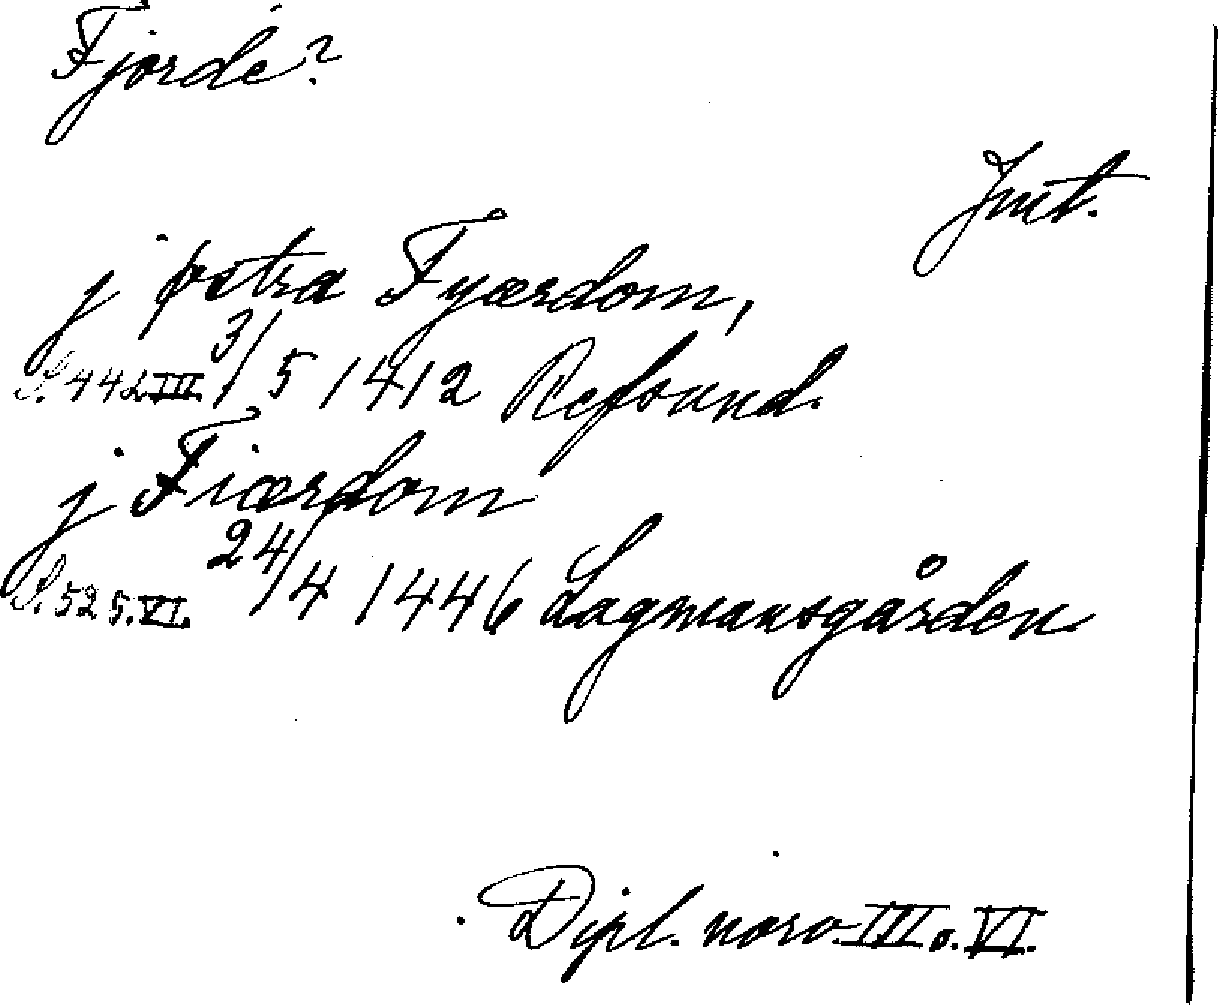 Fjärde?
Jmt.
j østra Fyærdom,
S. 442 III. 3/5 1412 Refsund.
j Fiærdom
S. 525. VI. 24/4 1446 Lagmansgården
Dipl. norv. III o. VI.